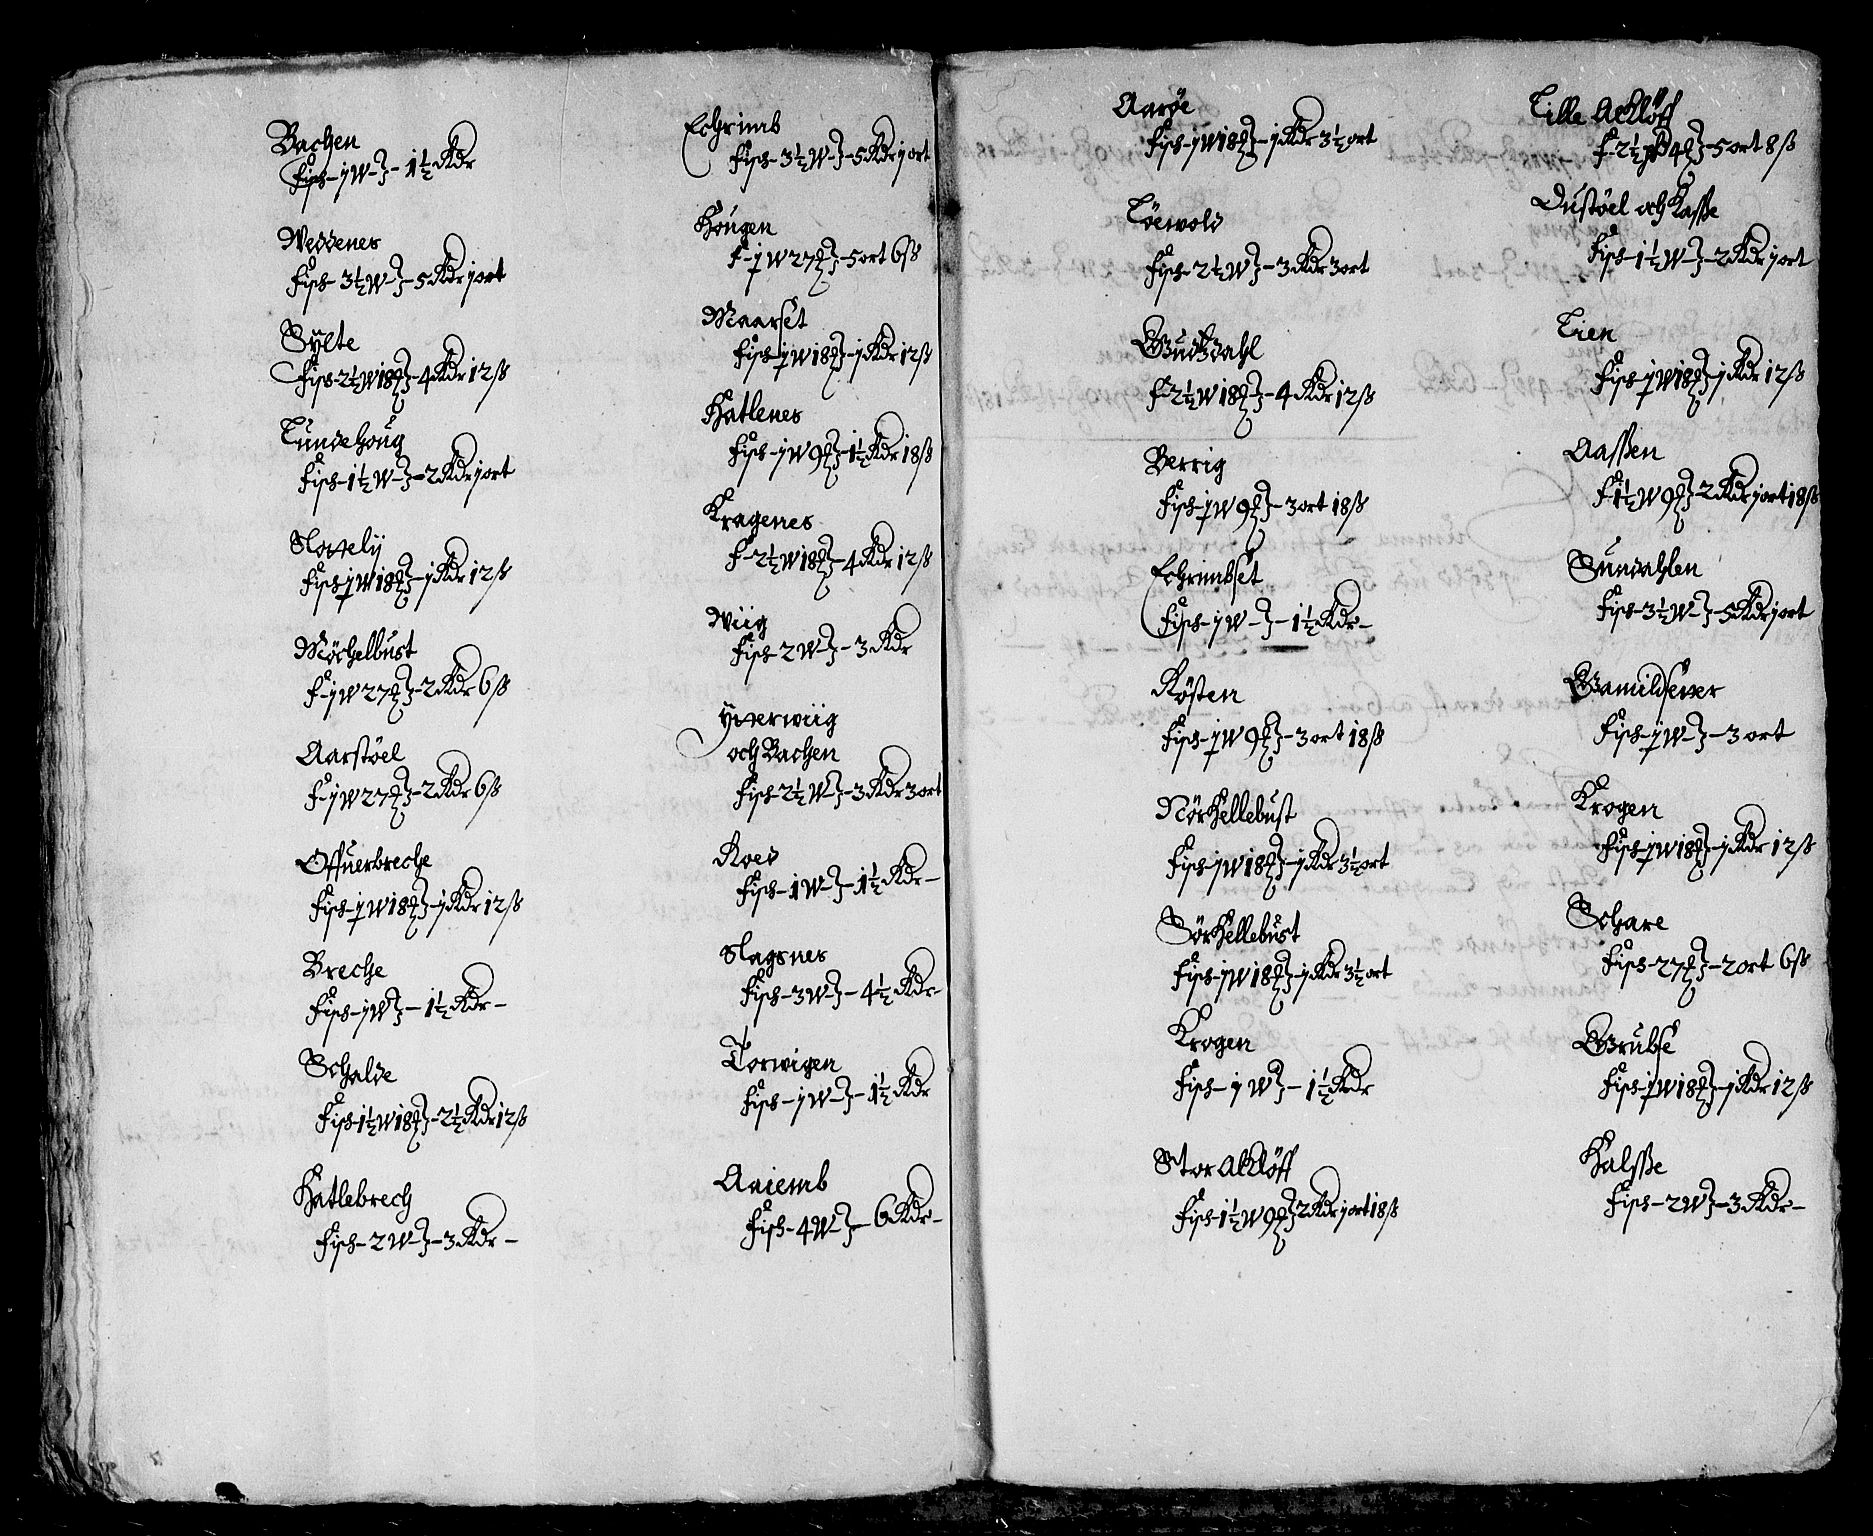 Bachen
Fisch - j W - 1½ Rdr
Weddenes
Fisch - 3½ W - 5 Rdr j ort
Sylte
Fisch 2½ W 18 ₰ - 4 Rdr 12 ß
Tundehoug
Fisch - 1½ W - 2 Rdr j ort
Slattelij
Fisch j W 18 ₰ - j Rdr 12 ß
Möchelbust
F - j W 27 ₰ - 2 Rdr 6 ß
Aarstöel
F - j W 27 ₰ - 2 Rdr 6 ß
Offuerbreche
Fisch - j W 18 ₰ - j Rdr 12 ß
Breche
Fisch - j W - 1½ Rdr -
Schalde
Fisch 1½ W 18 ₰ - 2½ Rdr 12 ß
Hatlebrech
Fisch - 2 W - 3 Rdr -
Echrimb
Fisch - 3½ W - 5 Rdr j ort
Hougen
F - j W 27 ₰ - 5 ort 6 ß
Maarset
Fisch - j W 18 ₰ - j Rdr 12 ß
Hatlenes
Fisch - j W 9 ₰ - 1½ Rdr 18 ß
Kragenes
F - 2½ W 18 ₰ - 4 Rdr 12 ß
Wiig
Fisch 2 W - 3 Rdr
Ytterwiig
och Bachen
Fisch - 2½ W - 3 Rdr 3 ort
Roed
Fisch - 1 W - 1½ Rdr -
Slagsnes
Fisch - 3 W - 4½ Rdr -
Torwigen
Fisch - j W - 1½ Rdr
Aaiemb
Fisch - 4 W - 6 Rdr -
Aaröe
Fisch - j W 18 ₰ - j Rdr 3½ ort
Töewold
Fisch - 2½ W - 3 Rdr 3 ort
Gudtzdahl
F - 2½ W 18 ₰ - 4 Rdr 12 ß
Berrig
Fisch - j W 9 ₰ - 3 ort 18 ß
Echrimbset
Fisch - j W - 1½ Rdr -
Rösten
Fisch - j W 9 ₰ - 3 ort 18 ß
Nörhellebust
Fisch - j W 18 ₰ - j Rdr 3½ ort
Sörhellebust
Fisch - j W 18 ₰ - j Rdr 3½ ort
Krogen
Fisch - j W - 1½ Rdr
Stor Aklöff
Fisch - 1½ W 9 ₰ 2 Rdr j ort 18 ß
Lille Acklöff
F - 2½ 4 ₰ - 5 ort 8 ß
Dustöel och Kasse
Fisch - 1½ W - 2 Rdr j ort
Lien
Fisch - j W 18 ₰ - j Rdr 12 ß
Aassen
F 1½ W 9 ₰ - 2 Rdr j ort 18 ß
Sundahlen
Fisch - 3½ W - 5 Rdr j ort
Gamildseter
Fisch - j W - 3 ort
Krogen
Fisch - j W 18 ₰ - j Rdr 12 ß
Schare
Fisch - 27 ₰ - 2 ort 6 ß
Grubse
Fisch - j W 18 ₰ - j Rdr 12 ß
Halsse
Fisch - 2 W - 3 Rdr -